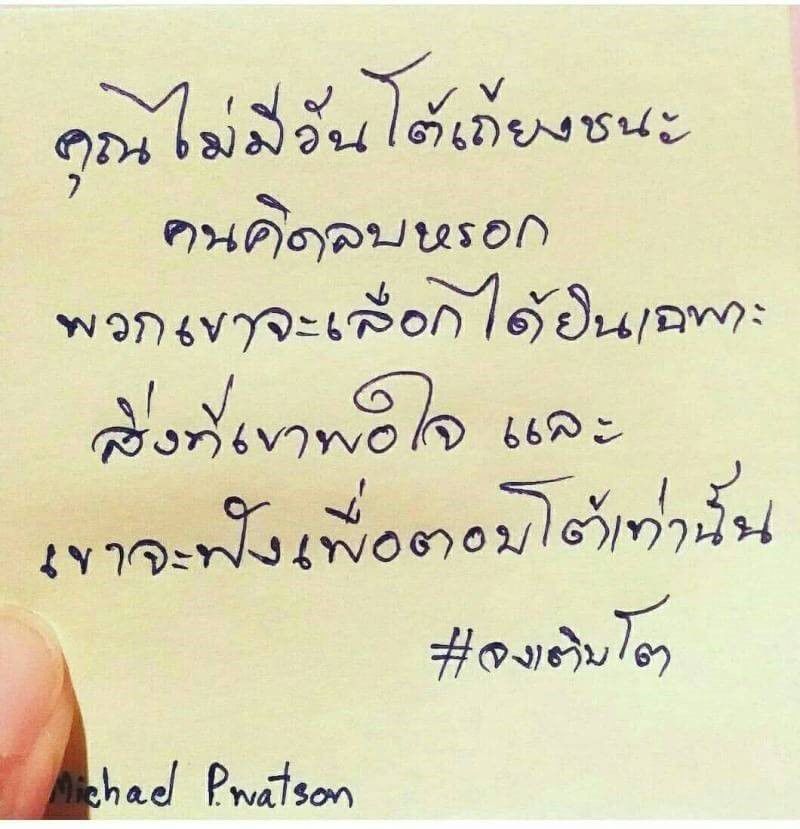 คุณไม่มีวันโต้เถียงชนะ
คนคิดลบหรอก
พวกเขาจะเลือกได้ยินเฉพาะ
สิ่งที่เขาพอใจ และ
เขาจะฟังเพื่อตอบโต้เท่านั้น
#จงเติบโต
Michael P.watson